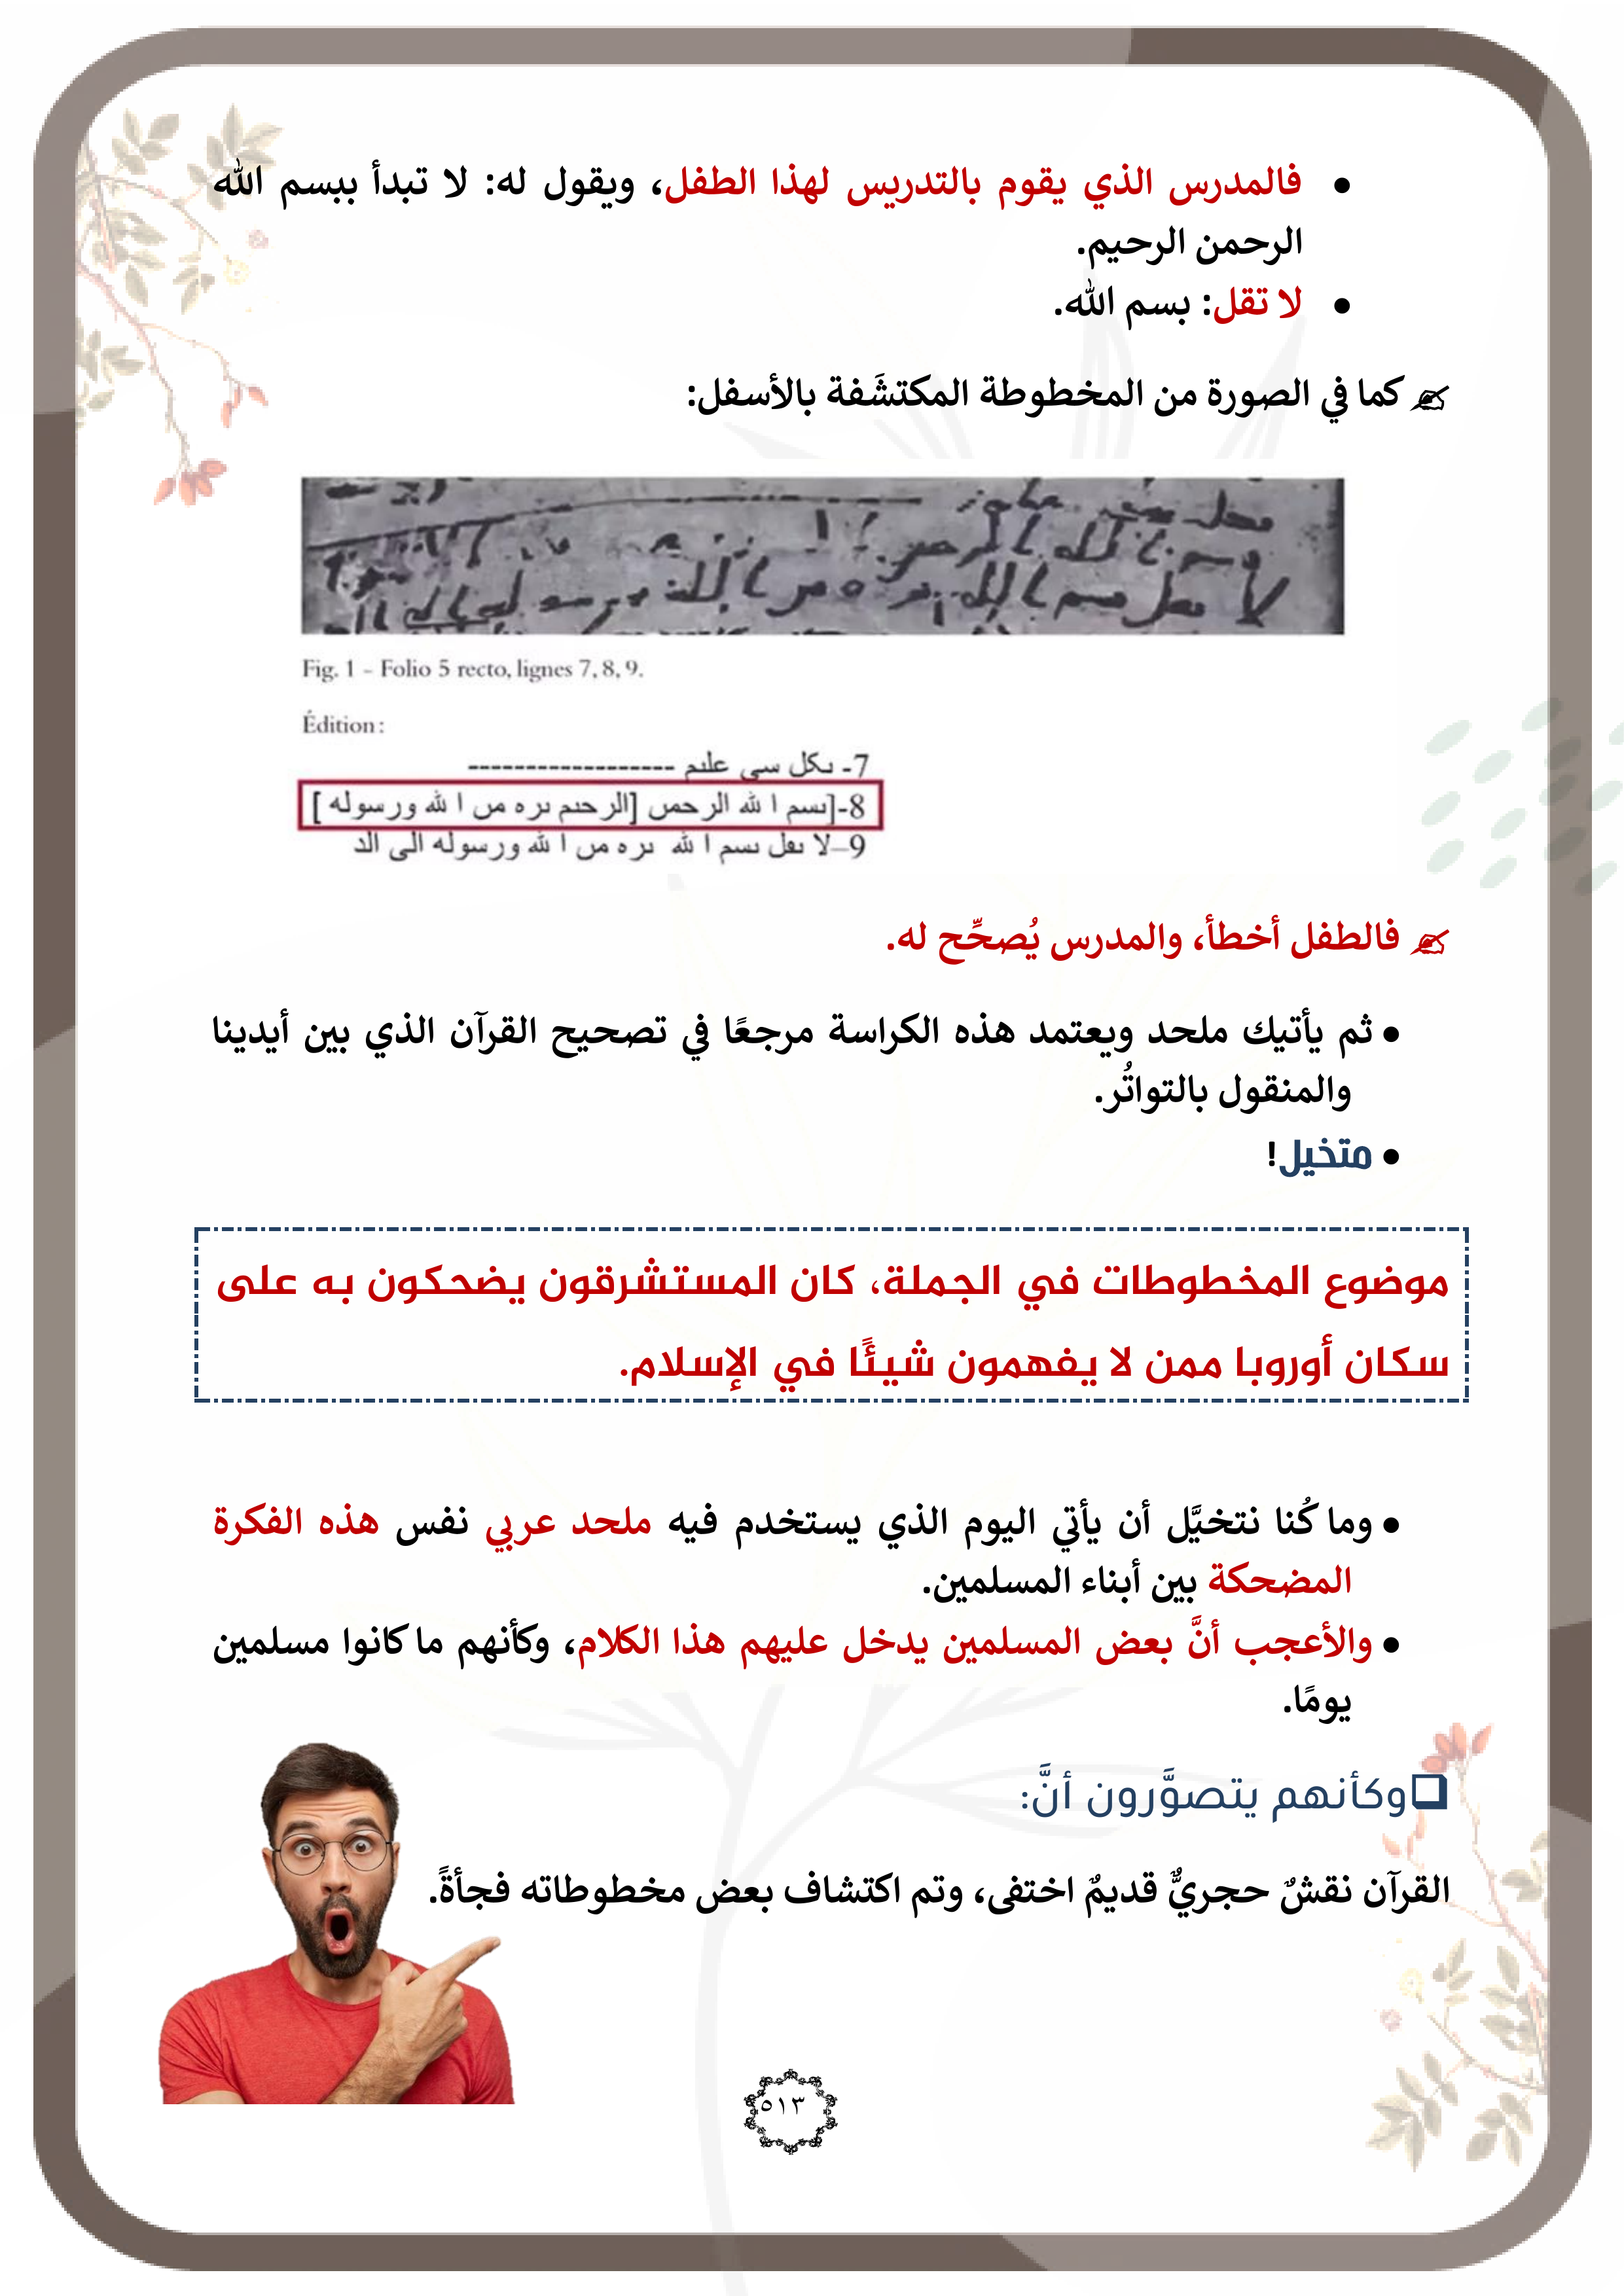 • فالمدرس الذي يقوم بالتدريس لهذا الطفل، ويقول له: لا تبدأ ببسم الله
الرحمن الرحيم.
• لا تقل: بسم الله.
كما في الصورة من المخطوطة المكتشَفة بالأسفل:
Fig. 1 – Folio 5 recto, lignes 7, 8, 9.
Édition :
7- ٮكل سى علٮم ------------------
8-[ٮسم ا لله الرحمں [الرحٮم ٮره مں ا لله ورسوله ]
9–لا ٮڡل ٮسم ا لله ٮره مں ا لله ورسوله الى الد
فالطفل أخطأ، والمدرس يُصحِّح له.
• ثم يأتيك ملحد ويعتمد هذه الكراسة مرجعًا في تصحيح القرآن الذي بين أيدينا
والمنقول بالتواتُر.
• متخيل!
موضوع المخطوطات في الجملة، كان المستشرقون يضحكون به على
سكان أوروبا ممن لا يفهمون شيئًا في الإسلام.
• وما كُنا نتخيَّل أن يأتي اليوم الذي يستخدم فيه ملحد عربي نفس هذه الفكرة
المضحكة بين أبناء المسلمين.
• والأعجب أنَّ بعض المسلمين يدخل عليهم هذا الكلام، وكأنهم ما كانوا مسلمين
يومًا.
❑وكأنهم يتصوَّرون أنَّ:
القرآن نقشٌ حجريٌّ قديمٌ اختفى، وتم اكتشاف بعض مخطوطاته فجأةً.
٥١٣